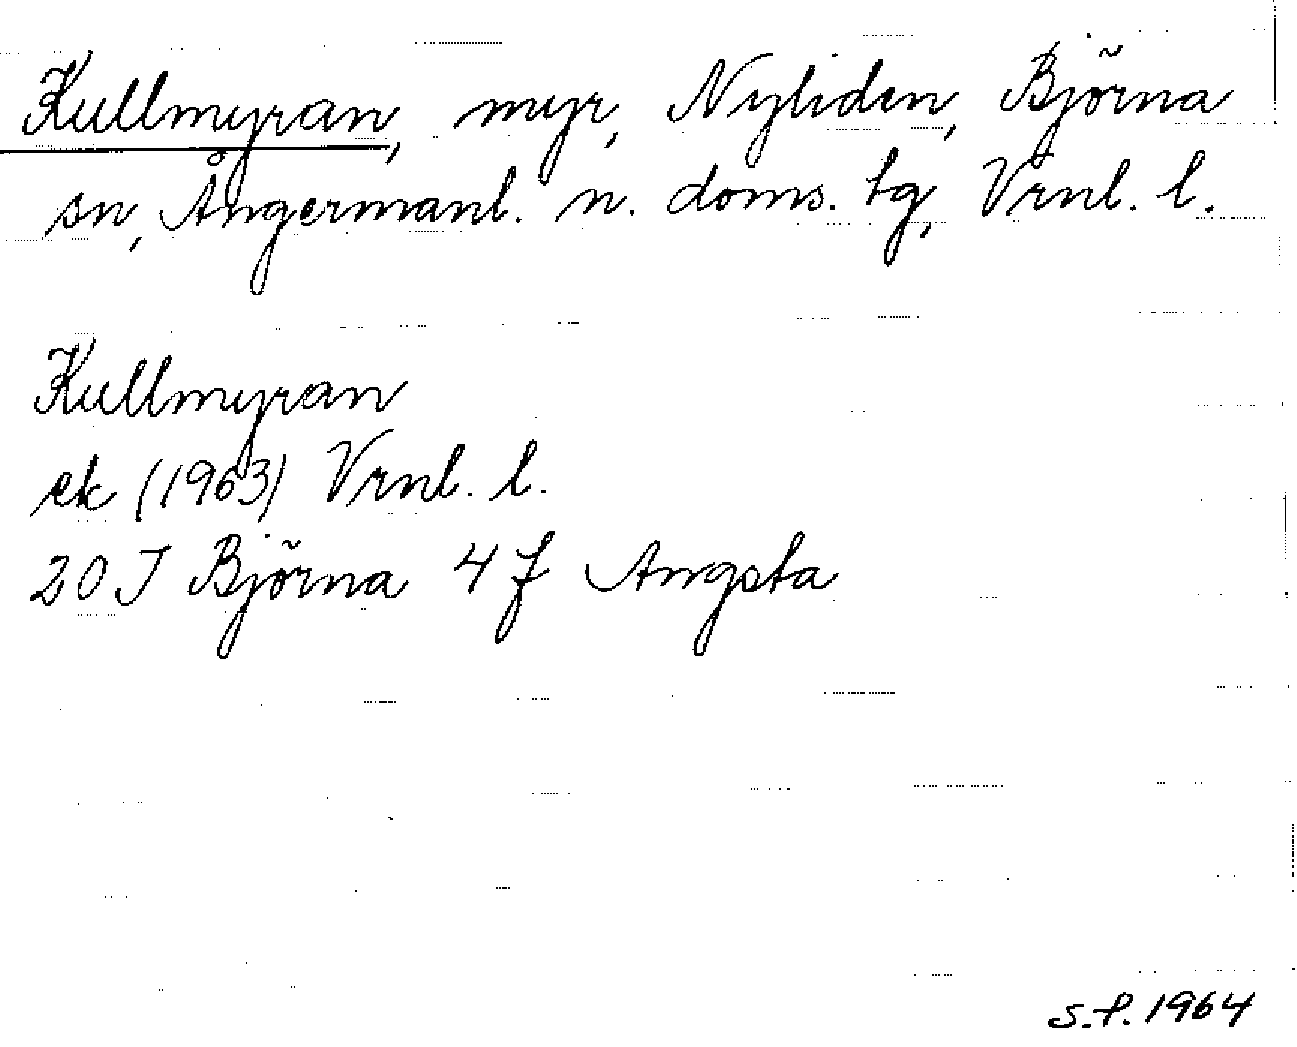 Kullmyran, myr, Nyliden, Björna
sn, Ångermanl. n. doms. tg, Vrnl. l.
Kullmyran
ek (1963) Vrnl. l.
20 I Björna 4 f Angsta
S.f. 1964